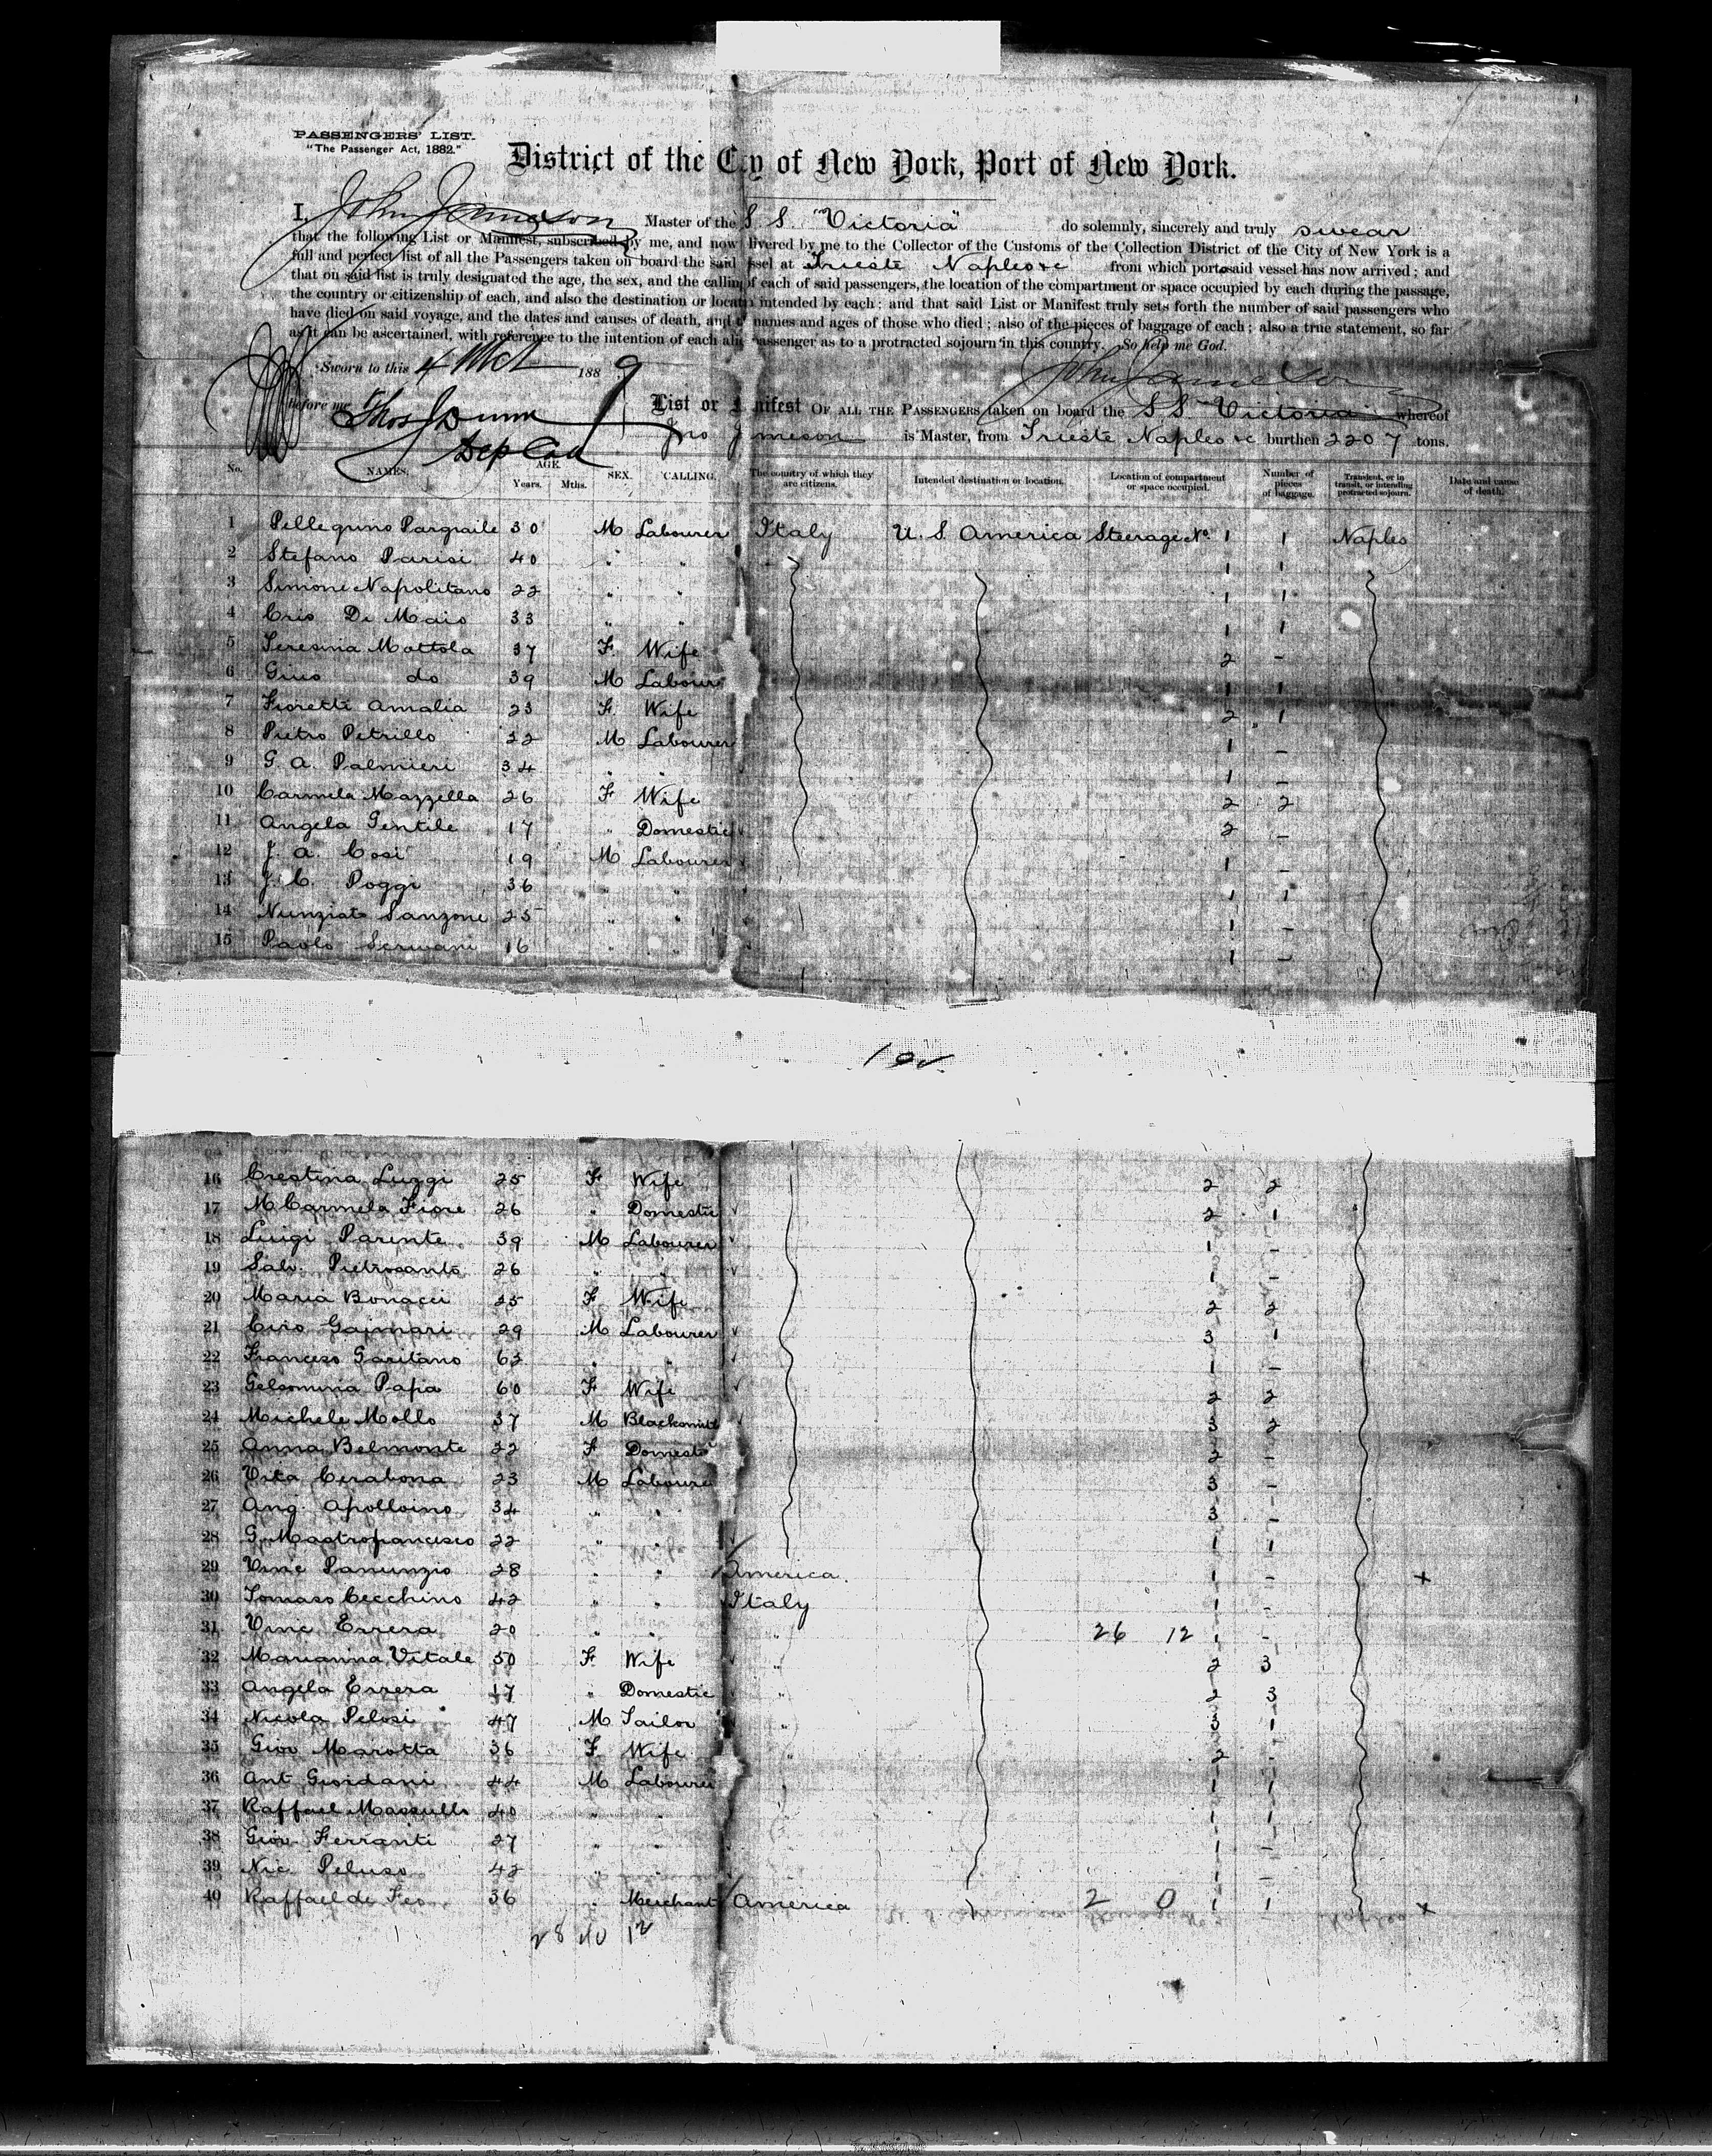 PASSENGERS' LIST.
"The Passenger Act, 1882."
District of the City of New York, Port of New York.
I, John Jameson Master of the S S. "Victoria" do solemnly, sincerely and truly swear
that the following List or Manifest, subscribed by me, and now livered by me to the Collector of the Customs of the Collection District of the City of New York is a
full and perfect list of all the Passengers taken on board the said ssel at Trieste Naples &c from which port said vessel has now arrived; and
that on said list is truly designated the age, the sex, and the calling of each of said passengers, the location of the compartment or space occupied by each during the passage,
the country or citizenship of each, and also the destination or locat intended by each; and that said List or Manifest truly sets forth the number of said passengers who
have died on said voyage, and the dates and causes of death, and names and ages of those who died; also of the pieces of baggage of each; also a true statement, so far
as it can be ascertained, with reference to the intention of each ali passenger as to a protracted sojourn in this country. So help me God.
Sworn to this 4 Oct 1889 John Jameson
before me Thos J Dunn
Dep Col
List or nifest OF ALL THE PASSENGERS taken on board the S S. Victoria whereof
Jno J meson is Master, from Trieste Naples &c burthen 2207 tons.
No. NAMES. AGE. Years. Mths. SEX. CALLING. The country of which they are citizens. Intended destination or location. Location of compartment or space occupied. Number of pieces of baggage. Transient, or in transit, or intending protracted sojourn. Date and cause of death.
1 Pellegrino Pargiaile 30 M Labourer Italy U. S America Steerage No. 1 1 Naples
2 Stefano Parisi 40 " " 1 1
3 Simone Napolitano 22 " " 1 1
4 Ciro Di Maio 33 " " 1 1
5 Teresina Mottola 37 F Wife 2 -
6 Gius do 39 M Labourer 1 1
7 Fioretti Amalia 23 F. Wife 2 1
8 Pietro Petrillo 22 M Labourer 1 -
9 G. A. Palmieri 34 " " 1 -
10 Carmela Mazzella 26 F Wife 2 2
11 Angela Gentile 17 " Domestic 2 -
12 J. A. Cosi 19 M Labourer 1 -
13 J. C. Poggi 36 " " 1 1
14 Nunziato Sanzone 25 " " 1 -
15 Paolo Scrivani 16 " " 1 -
16 Crestina Luggi 25 F Wife 2 2
17 M Carmela Fiore 26 " Domestic 2 1
18 Luigi Parente 39 M Labourer 1 -
19 Salv. Pietrosanto 26 " " 1 -
20 Maria Bonacci 25 F Wife 2 2
21 Ciro Gaimari 29 M Labourer 3 1
22 Francesco Garitano 63 " " 1 -
23 Gelsomina Papa 60 F Wife 2 2
24 Michele Mollo 37 M Blacksmith 3 2
25 Anna Belmonte 22 F Domestc 2 -
26 Vita Cerabona 23 M Laboure 3 -
27 Ang. Apolloino 34 " " 3 -
28 G. Mastrofrancesco 22 " " 1 1
29 Vinc Panunzio 28 " " America. 1 - x
30 Tomaso Cecchino 42 " " Italy 1 -
31 Vinc Errera 20 " " " 26 12 1 -
32 Marianna Vitale 50 F Wife " 2 3
33 Angela Errera 17 " Domestic " 2 3
34 Nicola Pelosi 47 M Tailor " 3 1
35 Giov Marotta 36 F Wife " 2 -
36 Ant Giordani 44 M Labourer 1 1
37 Raffael Massullo 40 " " 1 1
38 Giov. Ferranti 27 " " 1 -
39 Nic. Peluso 42 " " 1 -
40 Raffael de Feo 36 " Merchant America 2 0 1 1 x
28 40 12